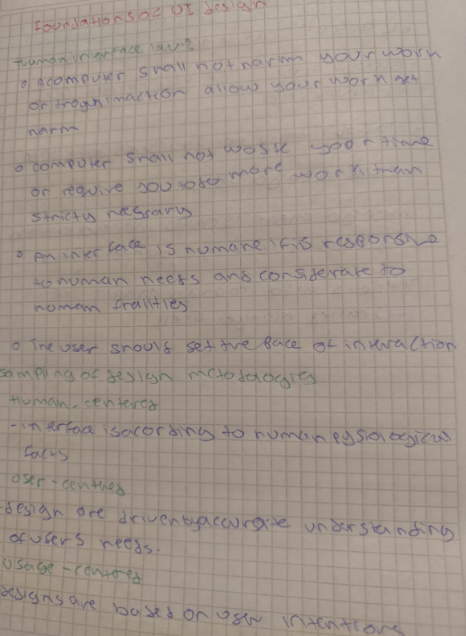 foundations of UI design
human inerface laws
o A computer shall not harm your work
or trogh inaction allow your work get
harm
o computer shall not waste your time
or require you to do more work than
stricty nessary
o An interface is humane if is responsive
to human needs and considerate to
homan frailties
o The user should set the pace of interaction
sampling of design metodologies
Human-centered
-interface is acording to human
user-centred
design are driven by accurate understanding
of users needs.
usage-centred
designs are based on user intentions